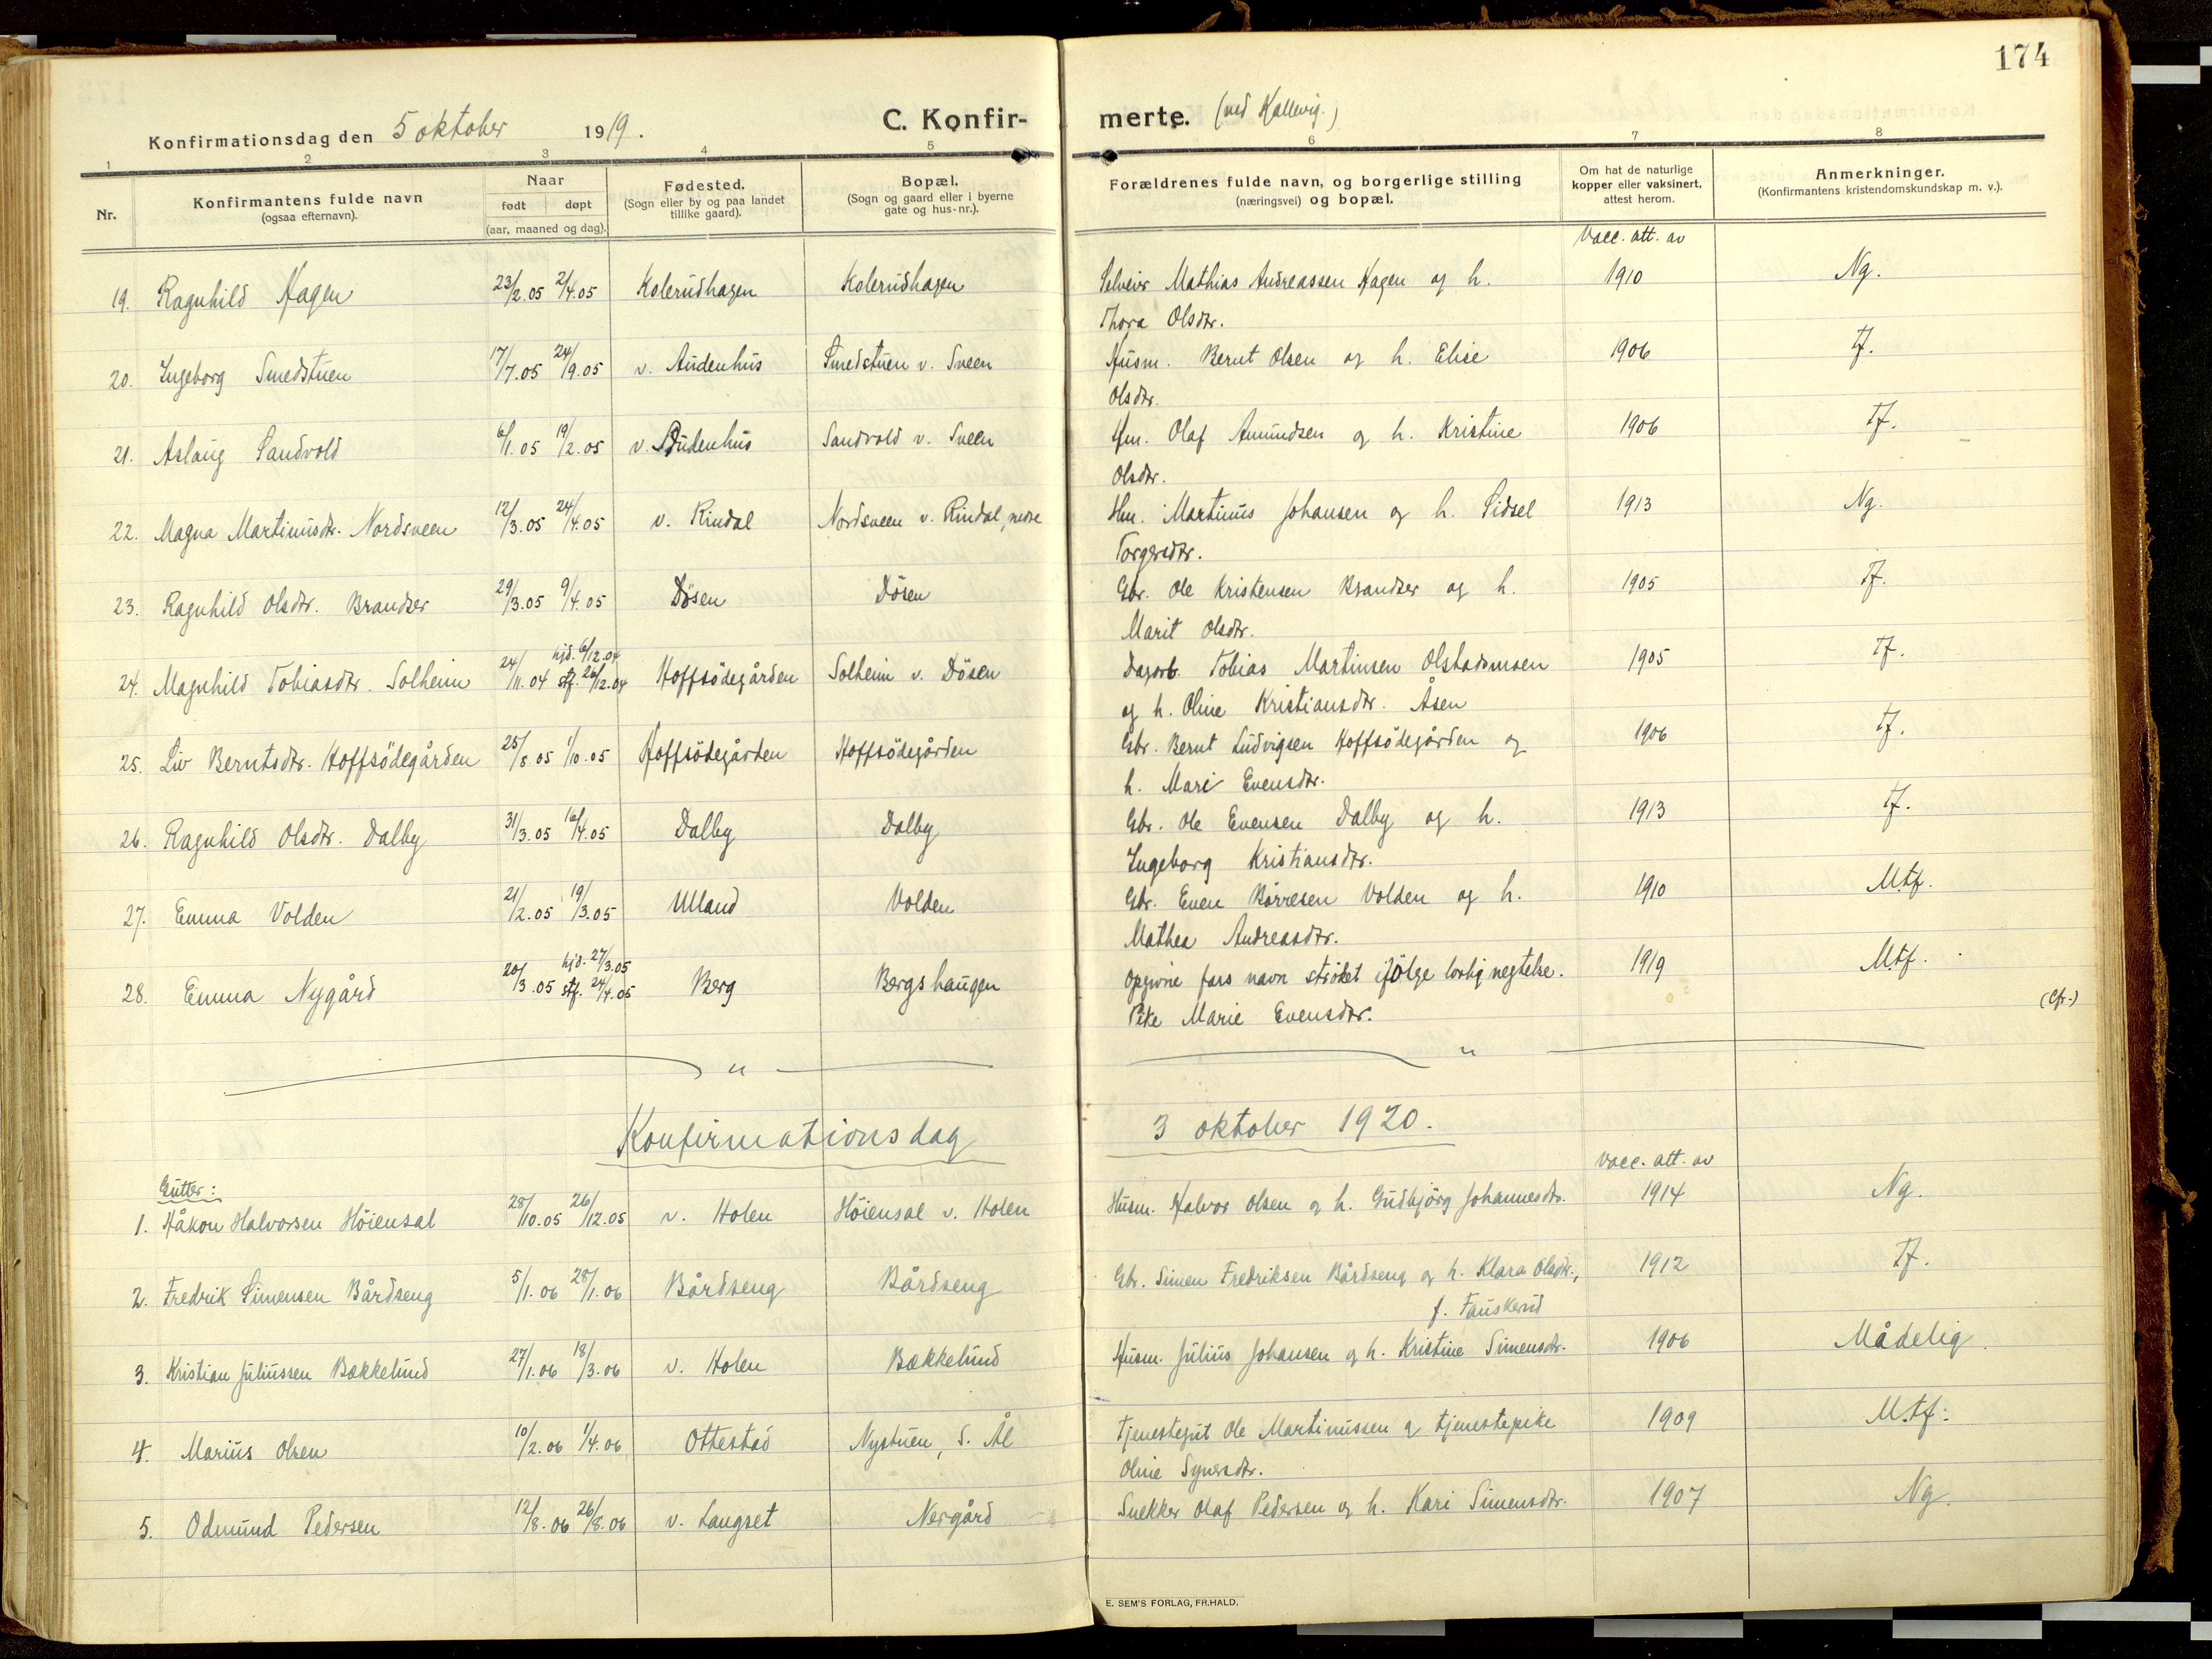 174
Konfirmationsdag den 5 oktober 1919. C. Konfir- merte. (ved Hallevig.)
1 2 3 4 5 6 7 8
Nr.
Konfirmantens fulde navn
(ogsaa efternavn).
Naar
født døpt
(aar, maaned og dag).
Fødested.
(Sogn eller by og paa landet
tillike gaard).
Bopæl.
(Sogn og gaard eller i byerne
gate og hus-nr.).
Forældrenes fulde navn, og borgerlige stilling
(næringsvei) og bopæl.
Om hat de naturlige
kopper eller vaksinert,
attest herom.
Anmerkninger.
(Konfirmantens kristendomskundskap m. v.).
Vacc. att. av
19. Ragnhild Hagen 23/2.05 2/4.05 Kolerudhagen Kolerudhagen Selveier Mathias Andreassen Hagen og h. 1910 Ng.
Thora Olsdtr.
20. Ingeborg Smedstuen 17/7.05 24/9.05 v. Audenhus Smedstuen v. Sveen Husm. Bernt Olsen og h. Elise 1906 Tf.
Olsdtr.
21. Aslaug Sandvold 6/1.05 19/2.05 v. Audenhus Sandvold v. Sveen Hm. Olaf Amundsen og h. Kristine 1906 Tf.
Olsdtr.
22. Magna Martinusdtr. Nordsveen 12/3.05 24/4.05 v. Rindal Nordsveen v. Rindal, nedre Hm. Martinus Johansen og h. Sidsel 1913 Ng.
Torgersdtr.
23. Ragnhild Olsdtr. Brandser 29/3.05 9/4.05 Døsen Døsen Gbr. Ole Kristensen Brandser og h. 1905 Tf.
Marit Olsdtr.
hjd. 6/12.04
24. Magnhild Tobiasdtr. Solheim 24/11.04 stf. 26/12.04 Hoffsödegården Solheim v. Døsen Dagarb. Tobias Martinsen Olstadsmoen 1905 Tf.
og h. Oline Kristiansdtr. Åsen
25. Liv Berntsdtr. Hoffsödegården 25/8.05 1/10.05 Hoffsödegården Hoffsödegården Gbr. Bernt Ludvigsen Hoffsödegården og 1906 Tf.
h. Mari Evensdtr.
26. Ragnhild Olsdtr. Dalby 31/3.05 16/4.05 Dalby Dalby Gbr. Ole Evensen Dalby og h. 1913 Tf.
Ingeborg Kristiansdtr.
27. Emma Volden 21/2.05 19/3.05 Ulland Volden Gbr. Even Børresen Volden og h. 1910 Mtf.
Mathea Andreasdtr.
hjd. 27/3.05
28. Emma Nygård 20/3.05 stf. 24/4.05 Berg Bergshaugen Opgivne fars navn strøket ifølge lovlig negtelse. 1919 Mtf.
Pike Marie Evensdtr. (cfr.)
" "
Konfirmationsdag 3 oktober 1920.
Vacc. att. av
Gutter:
1. Håkon Halvorsen Höiensal 28/10.05 26/12.05 v. Holen Höiensal v. Holen Husm. Halvor Olsen og h. Gudbjörg Johannesdtr. 1914 Ng.
2. Fredrik Simensen Bårdseng 5/1.06 28/1.06 Bårdseng Bårdseng Gbr. Simen Fredriksen Bårdseng og h. Klara Olsdtr., 1912 Tf.
f. Fauskerud
3. Kristian Juliussen Bækkelund 27/1.06 18/3.06 v. Holen Bækkelund Husm. Julius Johansen og h. Kristine Simensdtr. 1906 Mådelig.
4. Marius Olsen 10/2.06 1/4.06 Ottestad Nystuen, S. Ål Tjenestegut Ole Martinussen og tjenestepike 1909 Mtf.
Oline Syversdtr.
5. Odmund Pedersen 12/8.06 26/8.06 v. Langset Nergård Snekker Olaf Pedersen og h. Kari Simensdtr. 1907 Ng.
E. SEM'S FORLAG, FR.HALD.